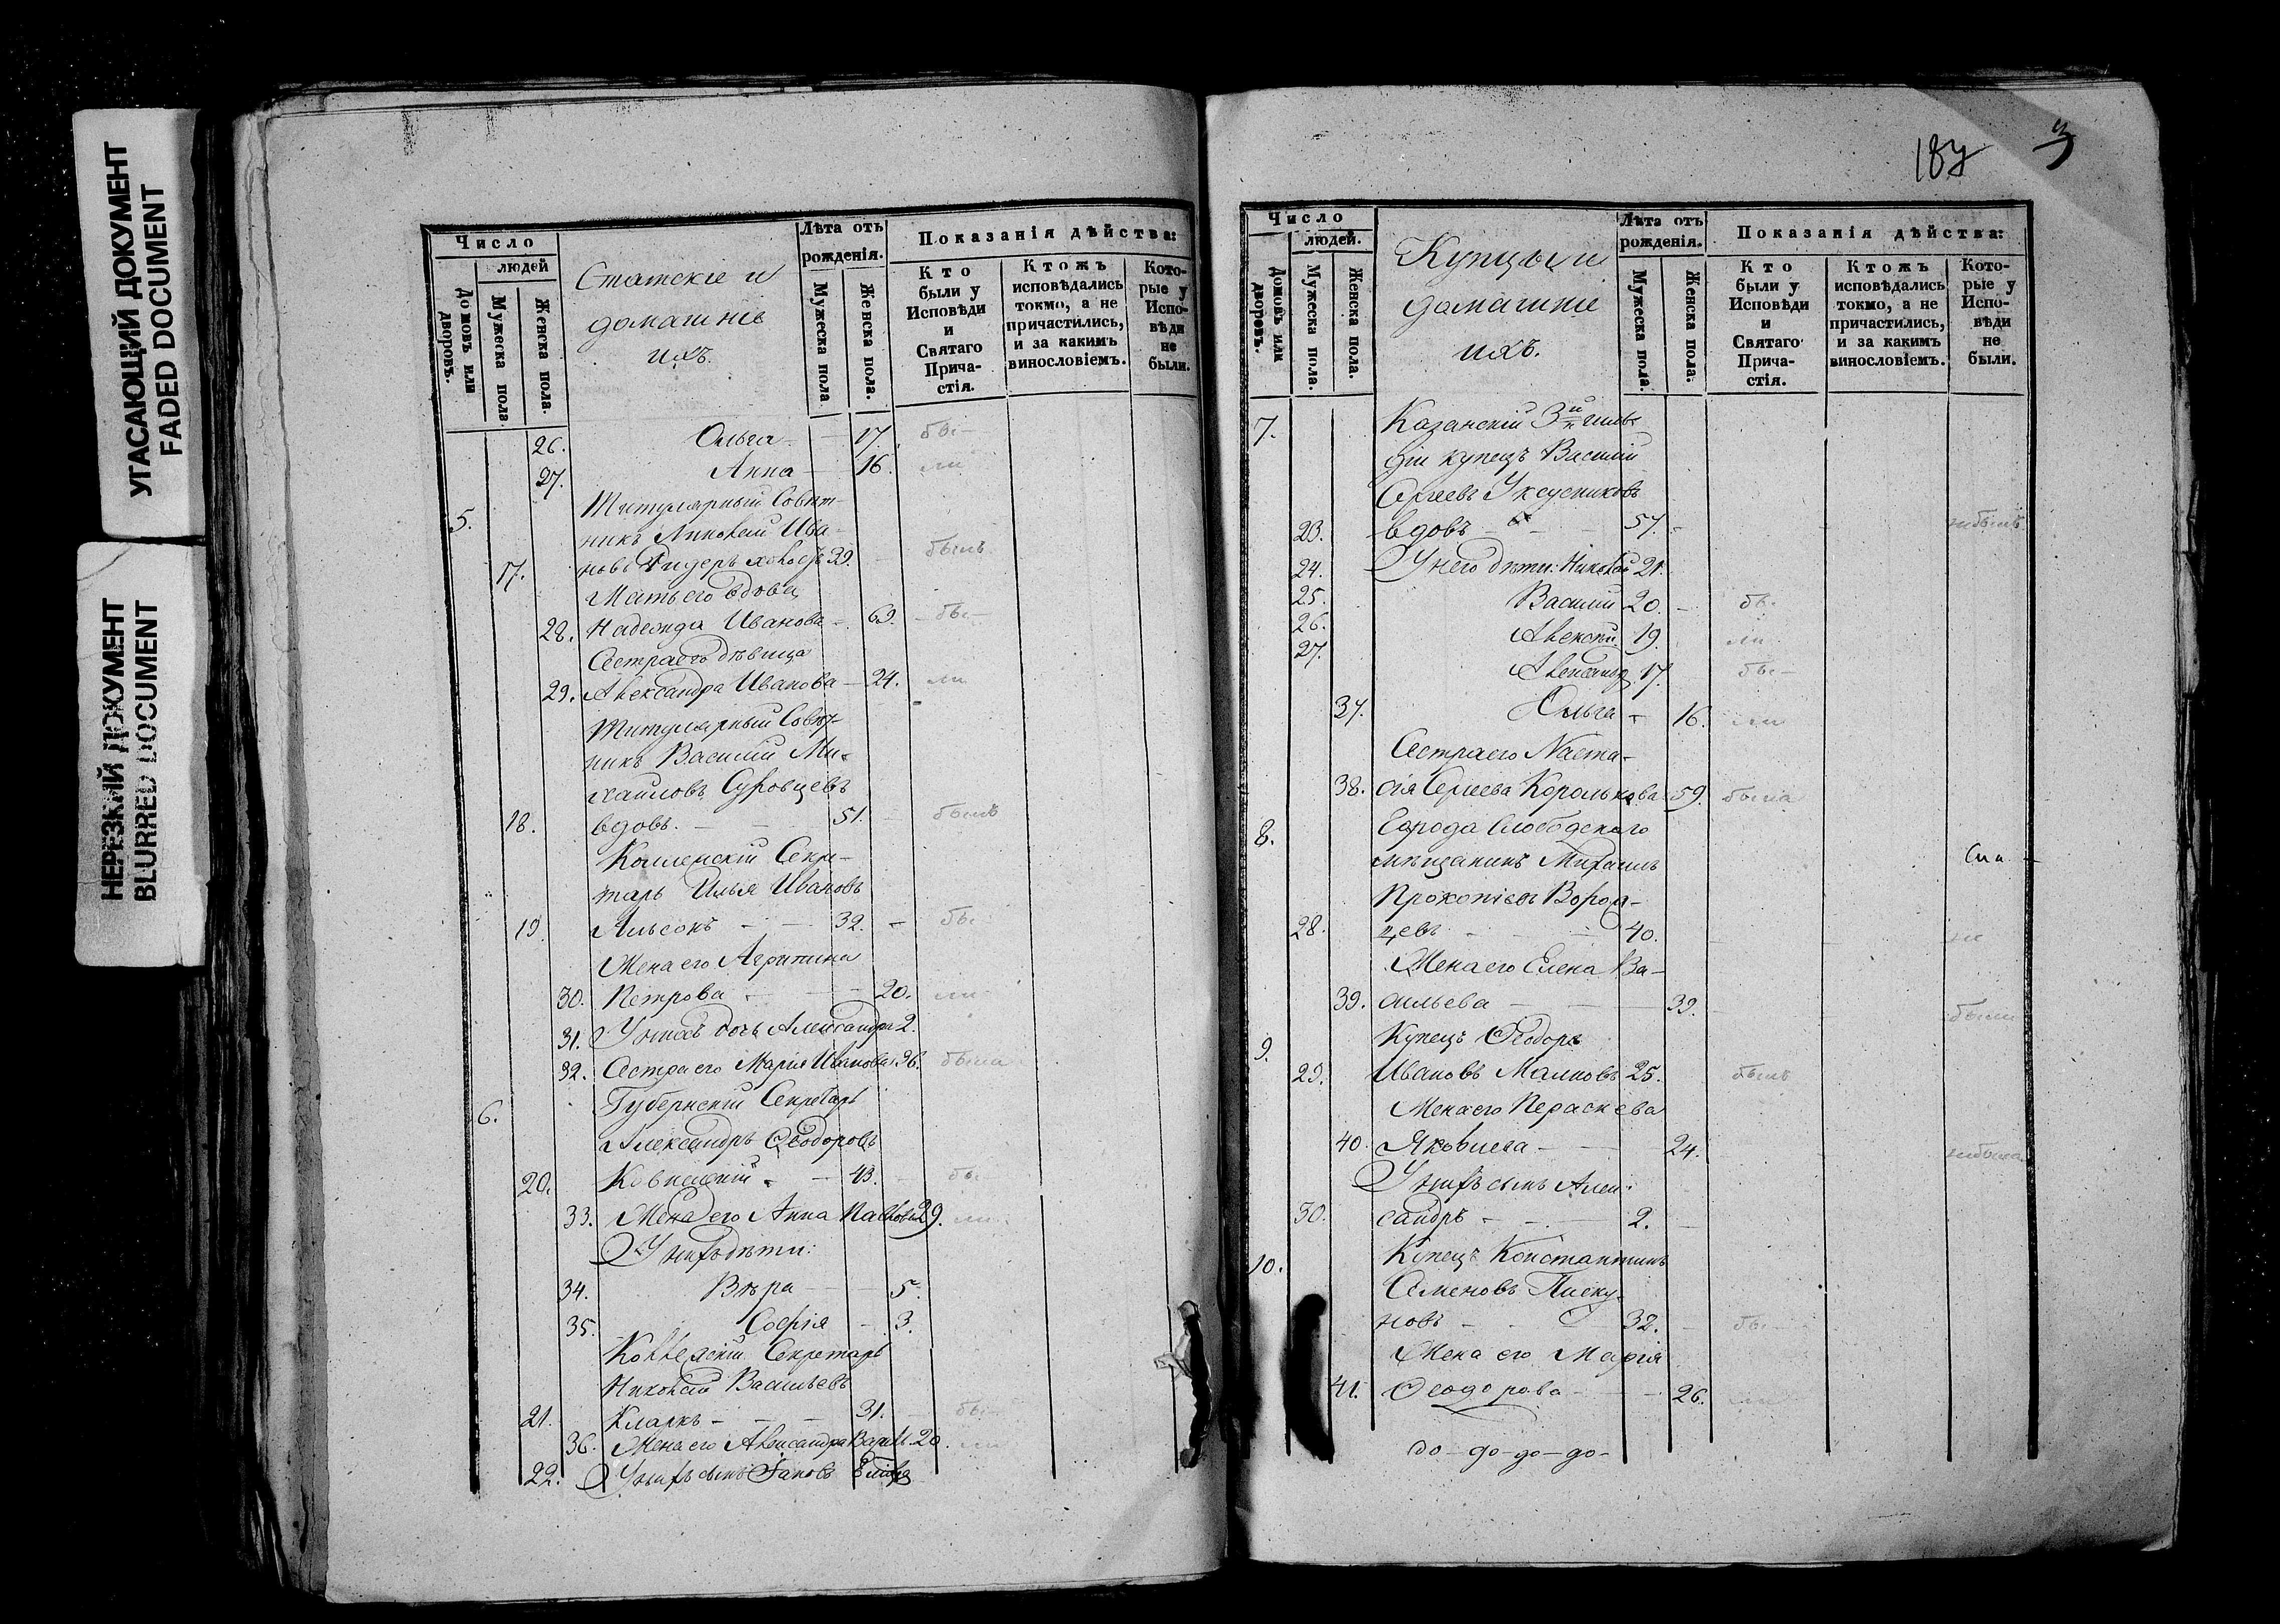 УГАСАЮЩИЙ ДОКУМЕНТ
FADED DOCUMENT
НЕРЕЗКИЙ ДОКУМЕНТ
BLURRED DOCUMENT
Число
людей
Домовъ или дворовъ.
Мужеска пола
Женска пола.
Статскіе и
домашніе
ихъ.
Лѣта отъ рожденія.
Мужеска пола
Женска пола.
Показанія дѣйства:
Кто были у Исповѣди и Святаго Причастія.
Ктожъ исповѣдались токмо, а не причастились, и за какимъ винословіемъ.
Которые у Исповѣди не были.
26. Ольга 17. бы-
27. Анна 16. ли
5. Титулярный Совѣт-
никъ Николай Ива-
17. новъ 39. былъ
Мать его вдова
28. Надежда Иванова 63. бы-
Сестра его дѣвица
29. Александра Иванова 24. ли
Титулярный Совѣт-
никъ Василій Ми-
хайловъ Суровцевъ
18. вдовъ. 51. былъ
Коллежскій Секре-
тарь Илья Ивановъ
19. Альсонъ 32. бы-
Жена его Агрипина
30. Петрова 20. ли
31. У нихъ дочь Александра 2.
32. Сестра его Марія Иванова 36. была
6. Губернскій Секретарь
Александръ Ѳеодоровъ
20. 43. бы-
33. Жена его Анна Павлова 29. ли
У нихъ дѣти:
34. Вѣра 5.
35. Софія 3.
Коллежскій Секретарь
Николай Васильевъ
21. Кларкъ 31. бы-
36. Жена его Александра 20. ли
22. У нихъ сынъ Іаковъ
187 3
Число
людей.
Домовъ или дворовъ.
Мужеска пола.
Женска пола.
Купцы и
домашніе
ихъ.
Лѣта отъ рожденія.
Мужеска пола.
Женска пола.
Показанія дѣйства:
Кто были у Исповѣди и Святаго Причастія.
Ктожъ исповѣдались токмо, а не причастились, и за какимъ винословіемъ.
Которые у Исповѣди не были.
7. Казанскій 3й гиль-
діи купецъ Василій
Сергеевъ Уксусниковъ
23. вдовъ 57. небылъ
24. У него дѣти: Николай 21.
25. Василій 20. бы-
26. Алексѣй 19. ли
27. Александр 17. бы-
37. Ольга 16. ли
Сестра его Наста-
38. сія Сергеева Королькова 59. была
8. Города Слободскаго
мѣщанинъ Михаилъ
Прокопіевъ Ворон-
28. цевъ 40. не
Жена его Елена Ва-
39. сильева 39. были
9. Купецъ Ѳеодоръ
29. Ивановъ Малковъ 25. былъ
Жена его Параскева
40. Яковлева 24. небыла
У нихъ сынъ Алек-
30. сандръ 2.
10. Купецъ Константинъ
Семеновъ Писку-
новъ 32. бы-
Жена его Марія
41. Ѳеодорова 26. ли
до - до - до - до -